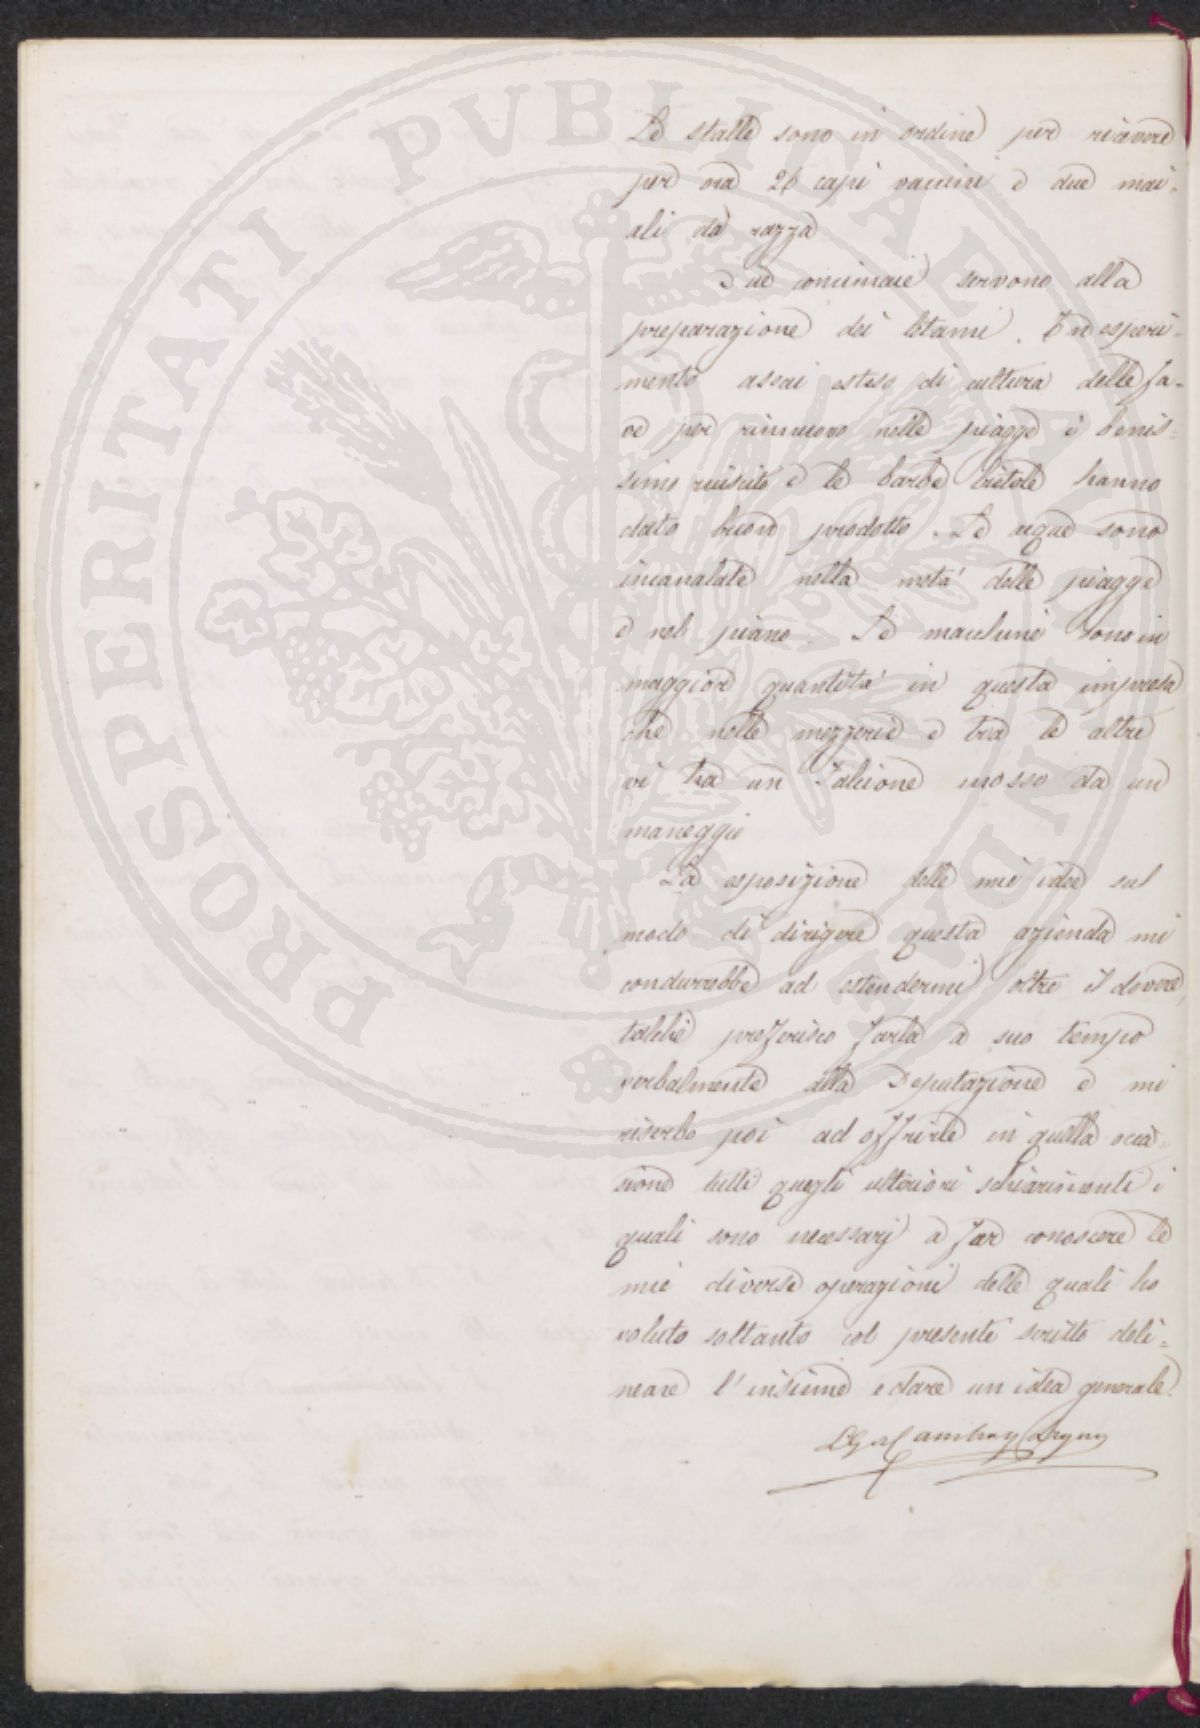 Le stalle sono in ordine per ricevere
per ora 26 capi vaccini e due mai-
ali da razza
Due concimaie servono alla
preparazione dei letami. Un esperi-
mento assai esteso di cultura delle fa-
ve per rinnuovo nelle piagge è benis-
simo riuscito e le barbe bietole hanno
dato buon prodotto. Le acque sono
incanalate nella metà delle piagge
e nel piano. Le macchine sono in
maggiore quantità in questa impresa
che nelle mezzerie e tra le altre
vi ha un Falcione mosso da un
maneggio
La esposizione delle mie idee sul
modo di dirigere questa azienda mi
condurrebbe ad estendermi oltre il dovere,
talchè preferisco farla a suo tempo
verbalmente alla Deputazione e mi
riserbo poi ad offrirle in quella occa-
sione tutti quegli ulteriori schiarimenti i
quali sono necessarj a far conoscere le
mie diverse operazioni delle quali ho
voluto soltanto col presente scritto deli-
neare l'insieme e dare un idea generale.
Cambray Digny
PROSPERITATI PUBLICAE AUGENDAE